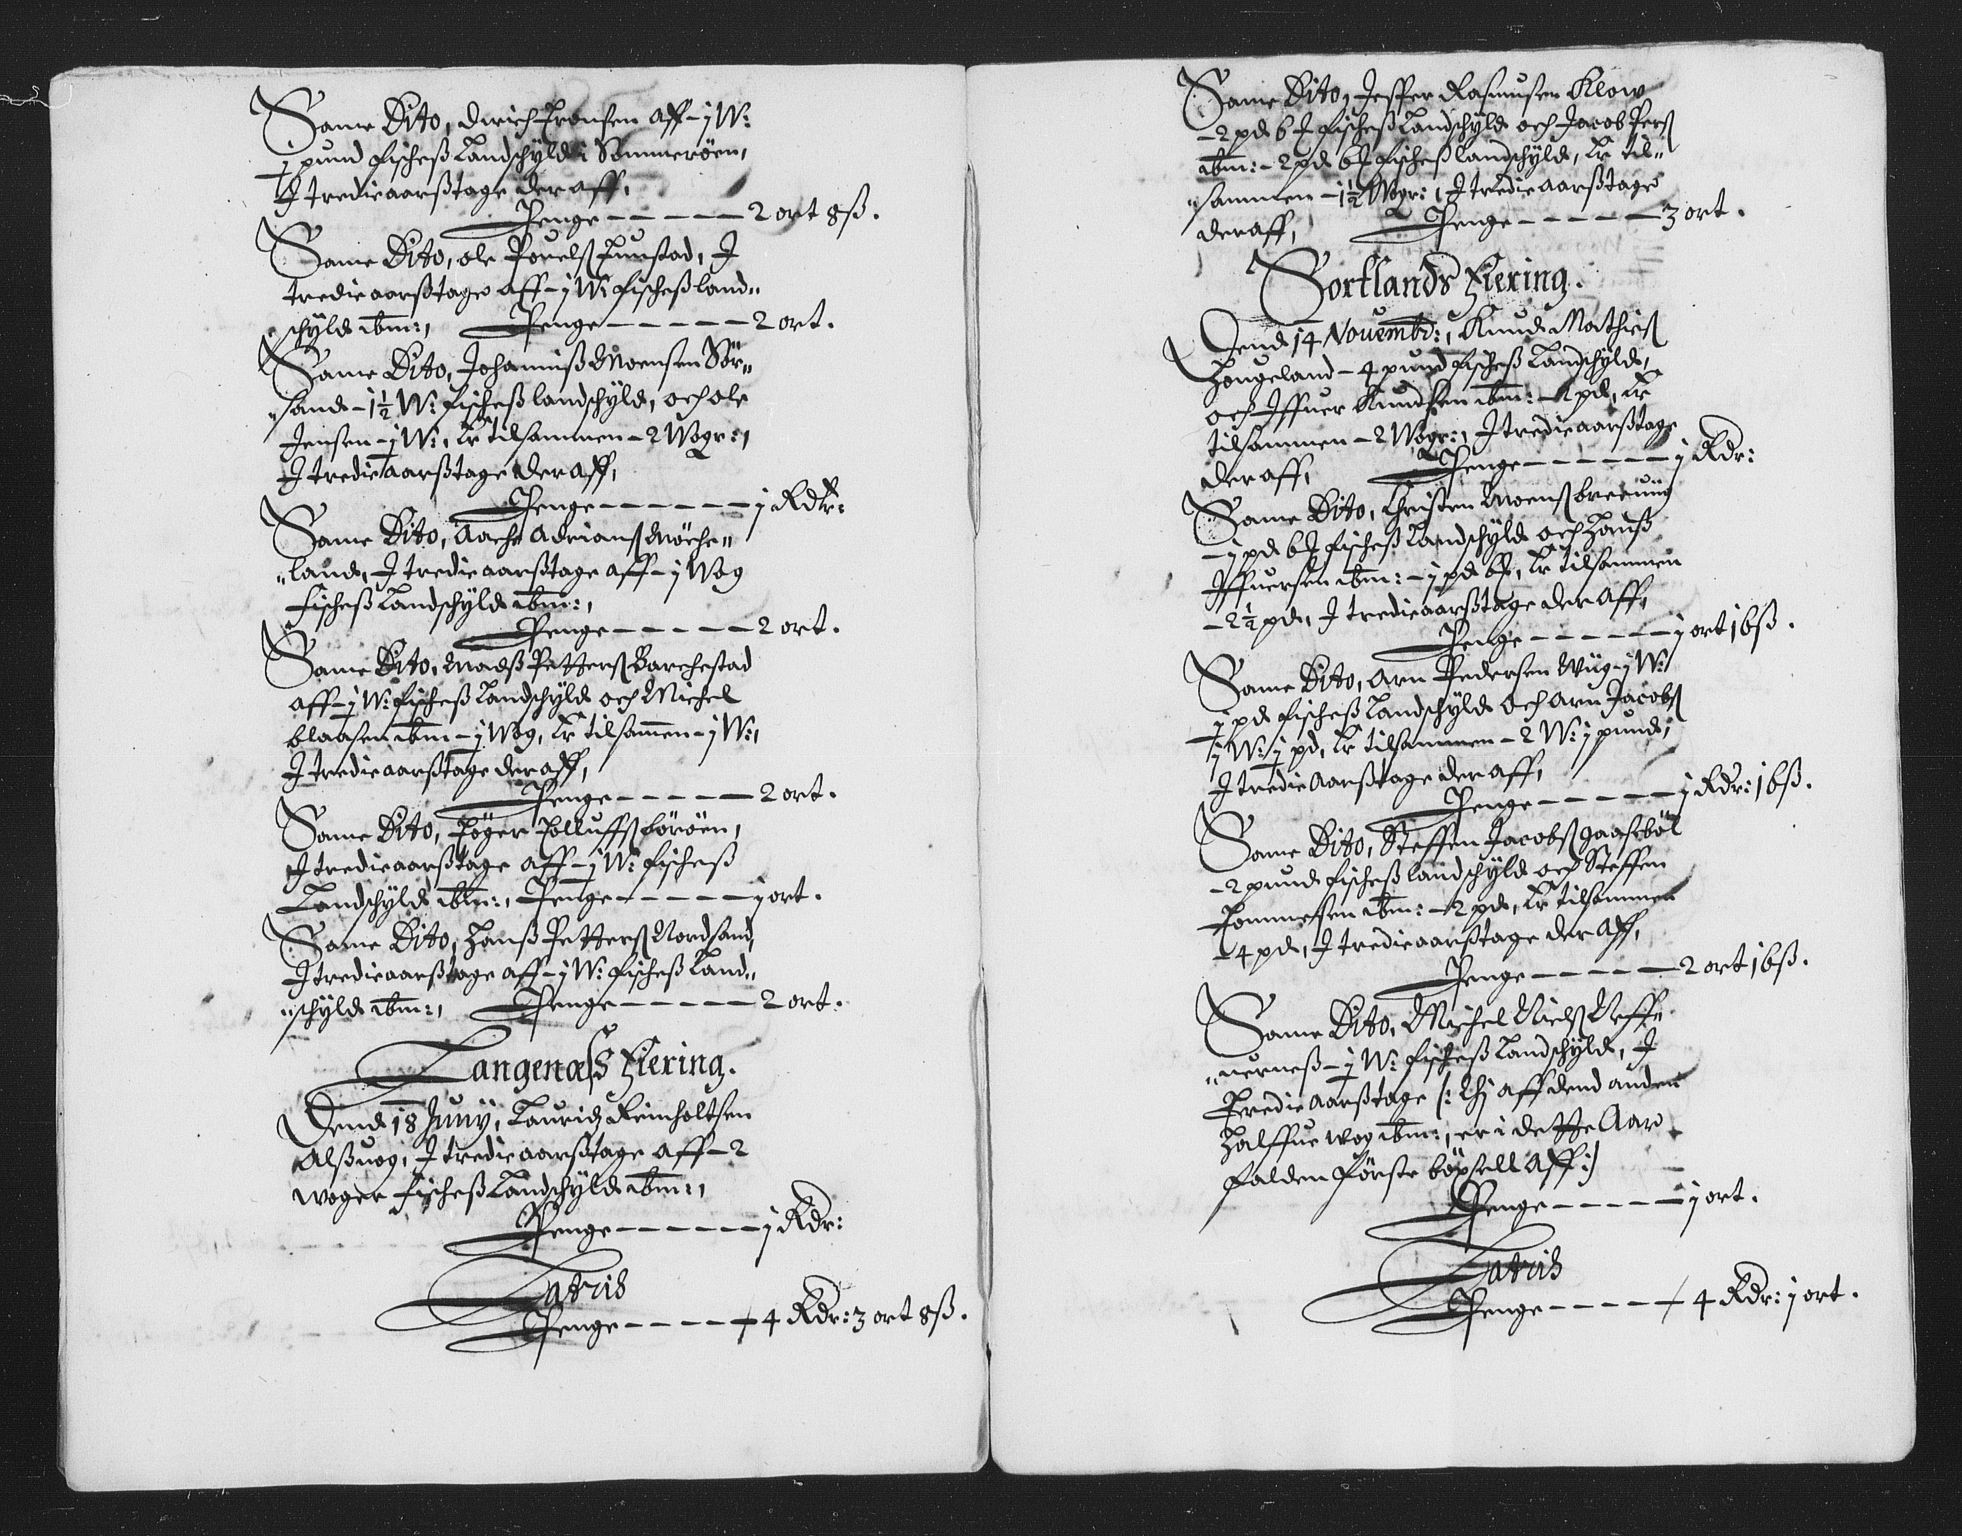 Same Dito, Dirich Jronsen aff - j W:
j pund fischeß Landschyld i Sommerøen,
J tredie aarßtage der aff,
Penge - - - - - 2 ort 8 ß.
Same Dito, ole Pouelß Tunstad, J
tredie aarßtage aff - j W: fischeß land-
schyld ibm:, Penge - - - - - 2 ort.
Same Dito, Johanniß Moensen Sør-
sand - 1½ W: fischeß landschyld, och ole
Jensen - ½ W:, Er tilsammen - 2 Woger:,
J tredie aarßtage der aff,
Penge - - - - - j Rdr:
Same Dito, Aache Adrianß Møche-
land, J tredie aarßtage aff - j Wog
fischeß Landschyld ibm:,
Penge - - - - - 2 ort.
Same Dito, Madß Petterß Barchestad
aff - ½ W: fischeß Landschyld och Michel
blaasen ibm - ½ Wog, Er tilsamen - j W:,
J tredie aarßtage der aff,
Penge - - - - - 2 ort.
Same Dito, Tøger Tolluffß børøen,
J tredie aarßtage aff - ½ W: fischeß
Landschyld ibm:, Penge - - - - - j ort.
Same Dito, Hanß Petterß Nordsand,
J tredie aarßtage aff - j W: fischeß Land-
schyld ibm:, Penge - - - - - 2 ort.
Langenæß Fiering.
Dend 18 Juny, Lauridz Reinholtsen
Alßuog, J tredie aarßtage aff - 2
woger fischeß Landschyld ibm:,
Penge - - - - - j Rdr:
Lateris
Penge - - - - - 4 Rdr: 3 ort 8 ß.
Same Dito, Jesper Rasmusen Klow
- 2 pd 6 J fischeß Landschyld och Jacob Perß
ibm: - 2 pd 6 J fischeß landschyld, Er til-
sammen - 1½ Wogr:, J tredie aarßtage
der aff, Penge - - - - - 3 ort.
Sortlands Fiering.
Dend 14 Novembr:, Knud Mathiß
Hougeland - 4 pund fischeß Landschyld,
och Iffuer Knudsen ibm: - 2 pd, Er
tilsammen - 2 Woger:, J tredie aarßtage
der aff, Penge - - - - - j Rdr:
Same Dito, Christen Moenß breeuiig
- j pd 6 J fischeß Landschyld och Hanß
Iffuersen ibm: - j pd 6 J, Er tilsammen
- 2½ pd, J tredie aarßtage der aff,
Penge - - - - - j ort 16 ß.
Same Dito, Arn Pedersen Wiig - j W:
j pd fischeß Landschyld och Arn Jacobß
½ W: ½ pd, Er tilsammen - 2 W: j pund,
J tredie Aarßtage der aff,
Penge - - - - - j Rdr: 16 ß.
Same Dito, Steffen Jacobß gaaseböl
- 2 pund fischeß landschyld och Steffen
Tommesen ibm: - 2 pd, Er tilsammen
- 4 pd, J tredie aarßtage der aff,
Penge - - - - - 2 ort 16 ß.
Same Dito, Michel Nielß Reff-
uerneß - ½ W: fischeß Landschyld, J
Tredie Aarßtage /: Thj aff dend anden
Halffue wog ibm:, er i dette Aar
falden første böxsell Aff :/
Penge - - - - - j ort.
Lateris
Penge - - - - - 4 Rdr: j ort.